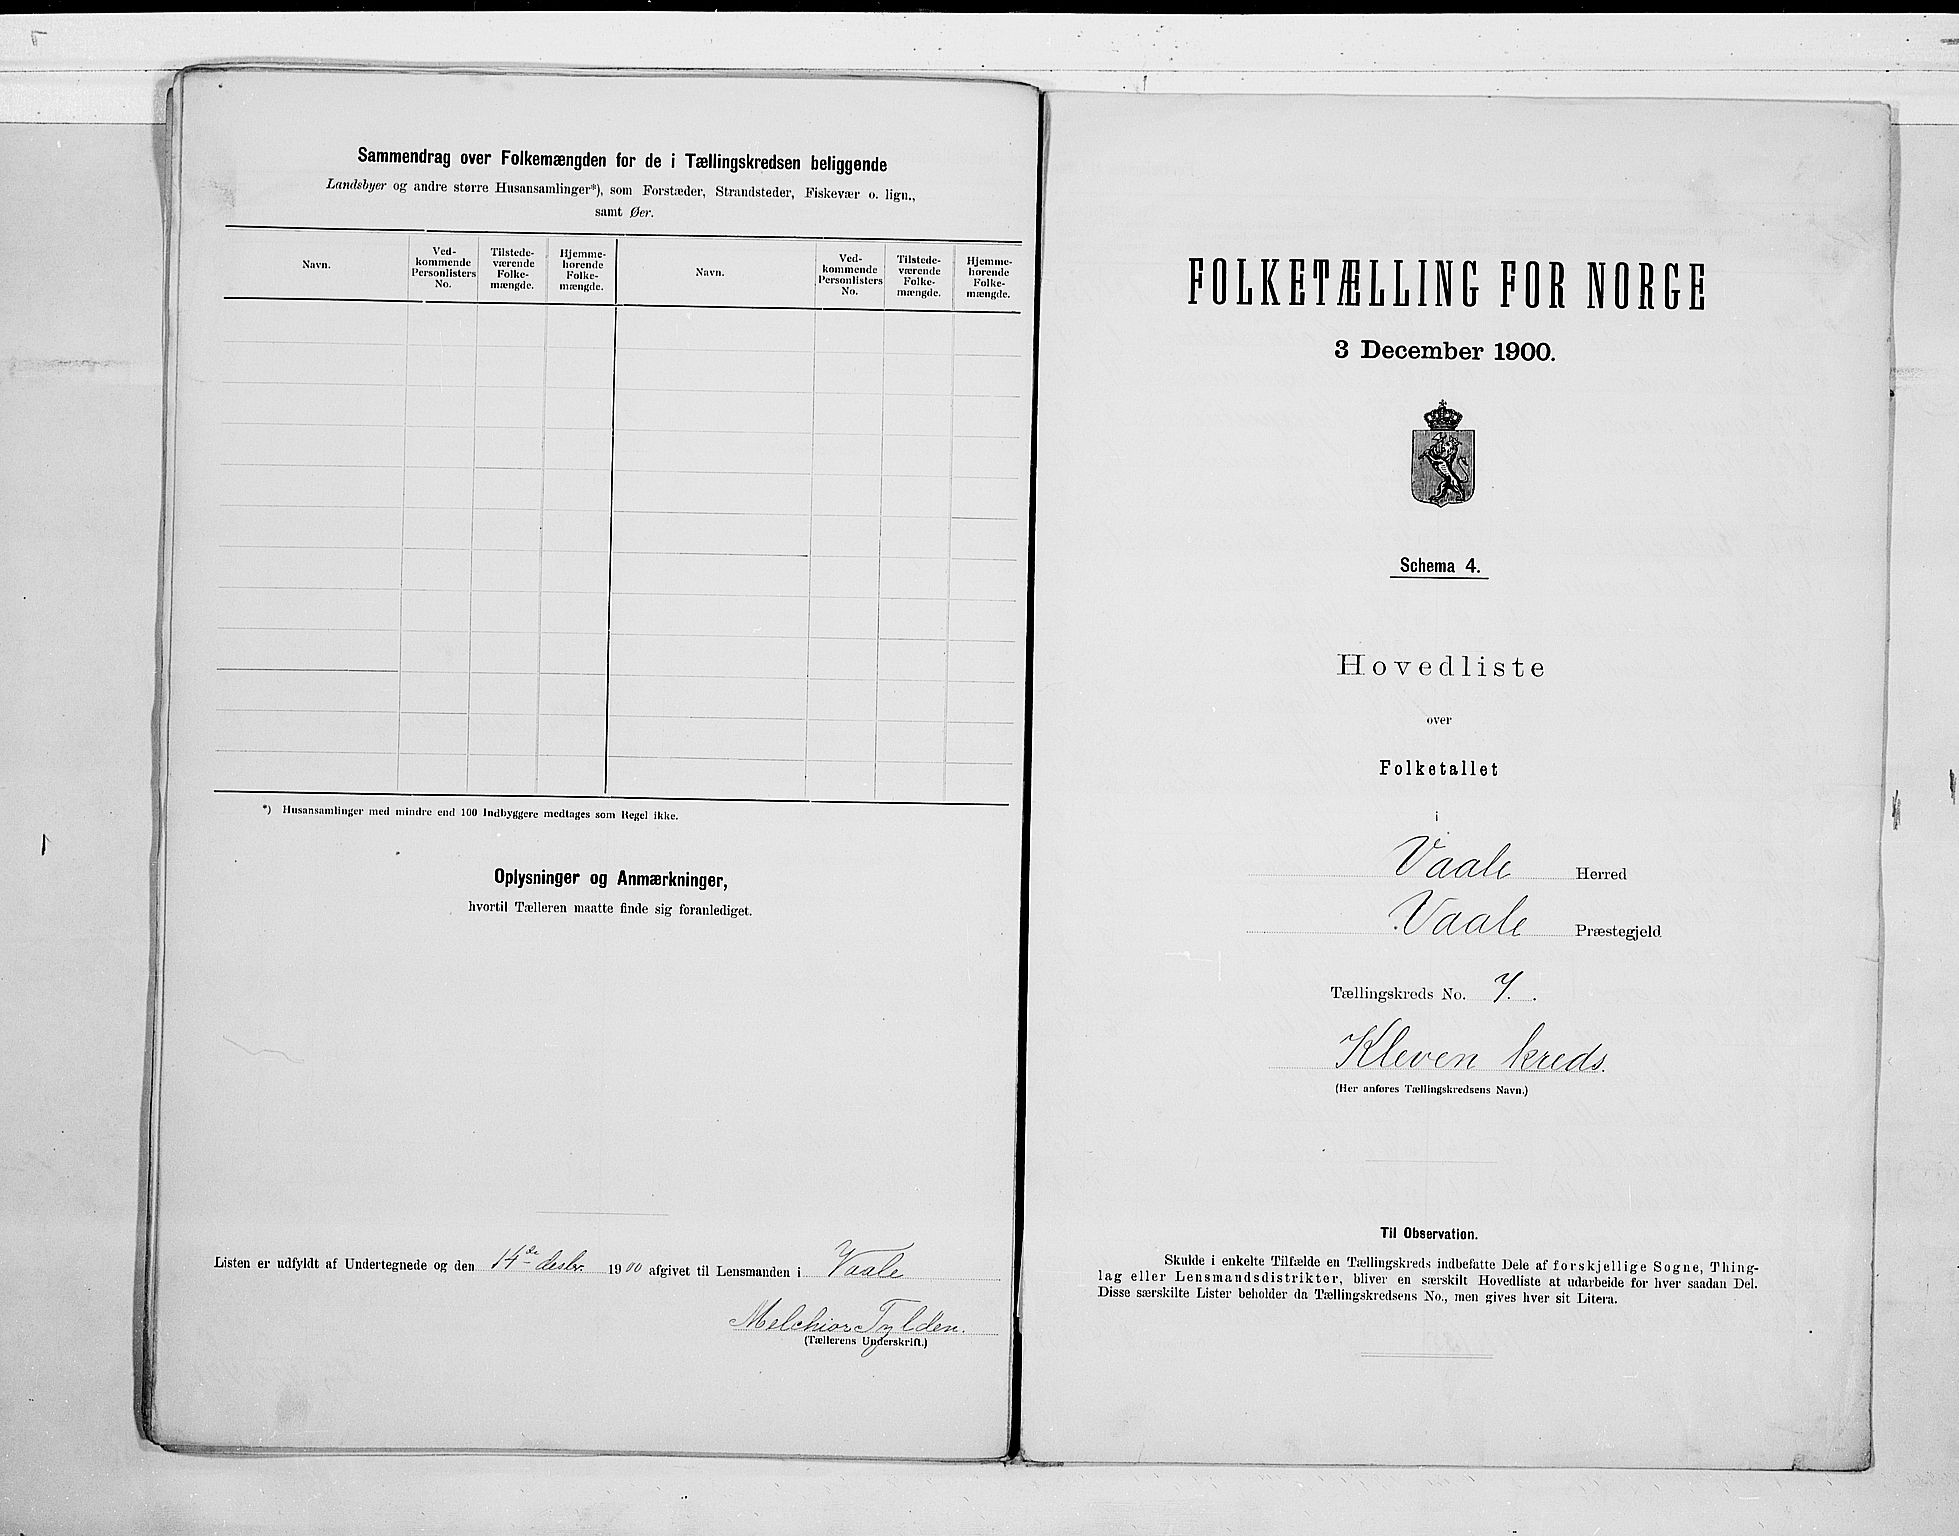 Sammendrag over Folkemængden for de i Tællingskredsen beliggende
Landsbyer og andre større Husansamlinger*), som Forstæder, Strandsteder, Fiskevær o. lign.,
samt Øer.
Navn.
Ved-
kommende
Personlisters
No.
Tilstede-
værende
Folke-
mængde.
Hjemme-
hørende
Folke-
mængde.
Navn.
Ved-
kommende
Personlisters
No.
Tilstede-
værende
Folke-
mængde.
Hjemme-
hørende
Folke-
mængde.
*) Husansamlinger med mindre end 100 Indbyggere medtages som Regel ikke.
Oplysninger og Anmærkninger,
hvortil Tælleren maatte finde sig foranlediget.
Listen er udfyldt af Undertegnede og den 14de desbr. 1900 afgivet til Lensmanden i Vaale
Melchior Tylden.
(Tællerens Underskrift.)
FOLKETÆLLING FOR NORGE
3 December 1900.
Schema 4.
Hovedliste
over
Folketallet
i
Vaale Herred
Vaale Præstegjeld
Tællingskreds No. 7.
Kleven kreds.
(Her anføres Tællingskredsens Navn.)
Til Observation.
Skulde i enkelte Tilfælde en Tællingskreds indbefatte Dele af forskjellige Sogne, Thing-
lag eller Lensmandsdistrikter, bliver en særskilt Hovedliste at udarbeide for hver saadan Del.
Disse særskilte Lister beholder da Tællingskredsens No., men gives hver sit Litera.